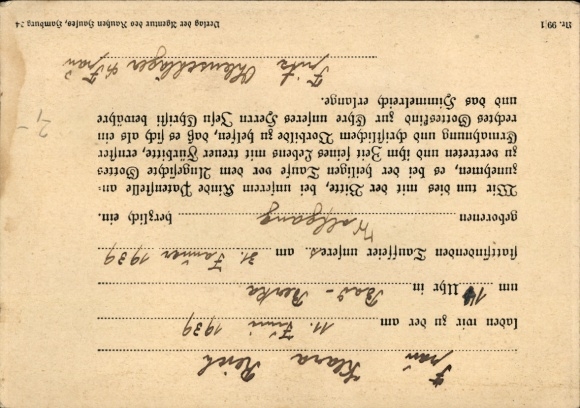 Frau Klara Reich
laden wir zu der am 11. Juni 1939
um 14 Uhr in Bad-Berka
stattfindenden Tauffeier unseres am 31. Januar 1939
geborenen Wolfgang herzlich ein.
Wir tun dies mit der Bitte, bei unserem Kinde Patenstelle an-
zunehmen, es bei der heiligen Taufe vor dem Angesichte Gottes
zu vertreten und ihm Zeit seines Lebens mit treuer Fürbitte, ernster
Ermahnung und christlichem Vorbilde zu helfen, daß es sich als ein
rechtes Gotteskind zur Ehre unseres Herrn Jesu Christi bewahre
und das Himmelreich erlange.
Fritz Ohlenschläger u. Frau
Nr. 99 I
Verlag der Agentur des Rauhen Hauses, Hamburg 24
2,-